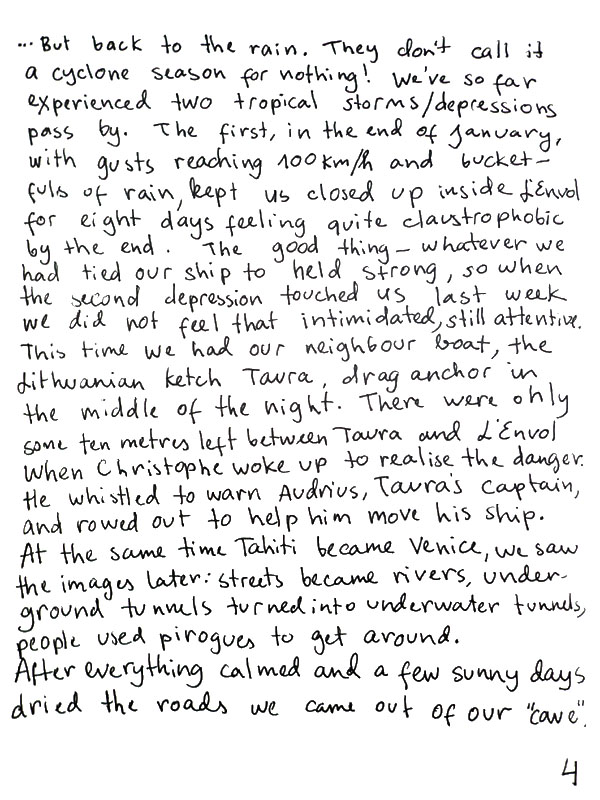 ... But back to the rain. They don't call it
a cyclone season for nothing! We've so far
experienced two tropical storms/depressions
pass by. The first, in the end of January,
with gusts reaching 100km/h and bucket-
fuls of rain, kept us closed up inside L'Envol
for eight days feeling quite claustrophobic
by the end. The good thing - whatever we
had tied our ship to held strong, so when
the second depression touched us last week
we did not feel that intimidated, still attentive.
This time we had our neighbour boat, the
Lithuanian ketch Taura, drag anchor in
the middle of the night. There were only
some ten metres left between Taura and L'Envol
when Christophe woke up to realise the danger.
He whistled to warn Audrius, Taura's captain,
and rowed out to help him move his ship.
At the same time Tahiti became Venice, we saw
the images later: streets became rivers, under-
ground tunnels turned into underwater tunnels,
people used pirogues to get around.
After everything calmed and a few sunny days
dried the roads we came out of our "cave".
4